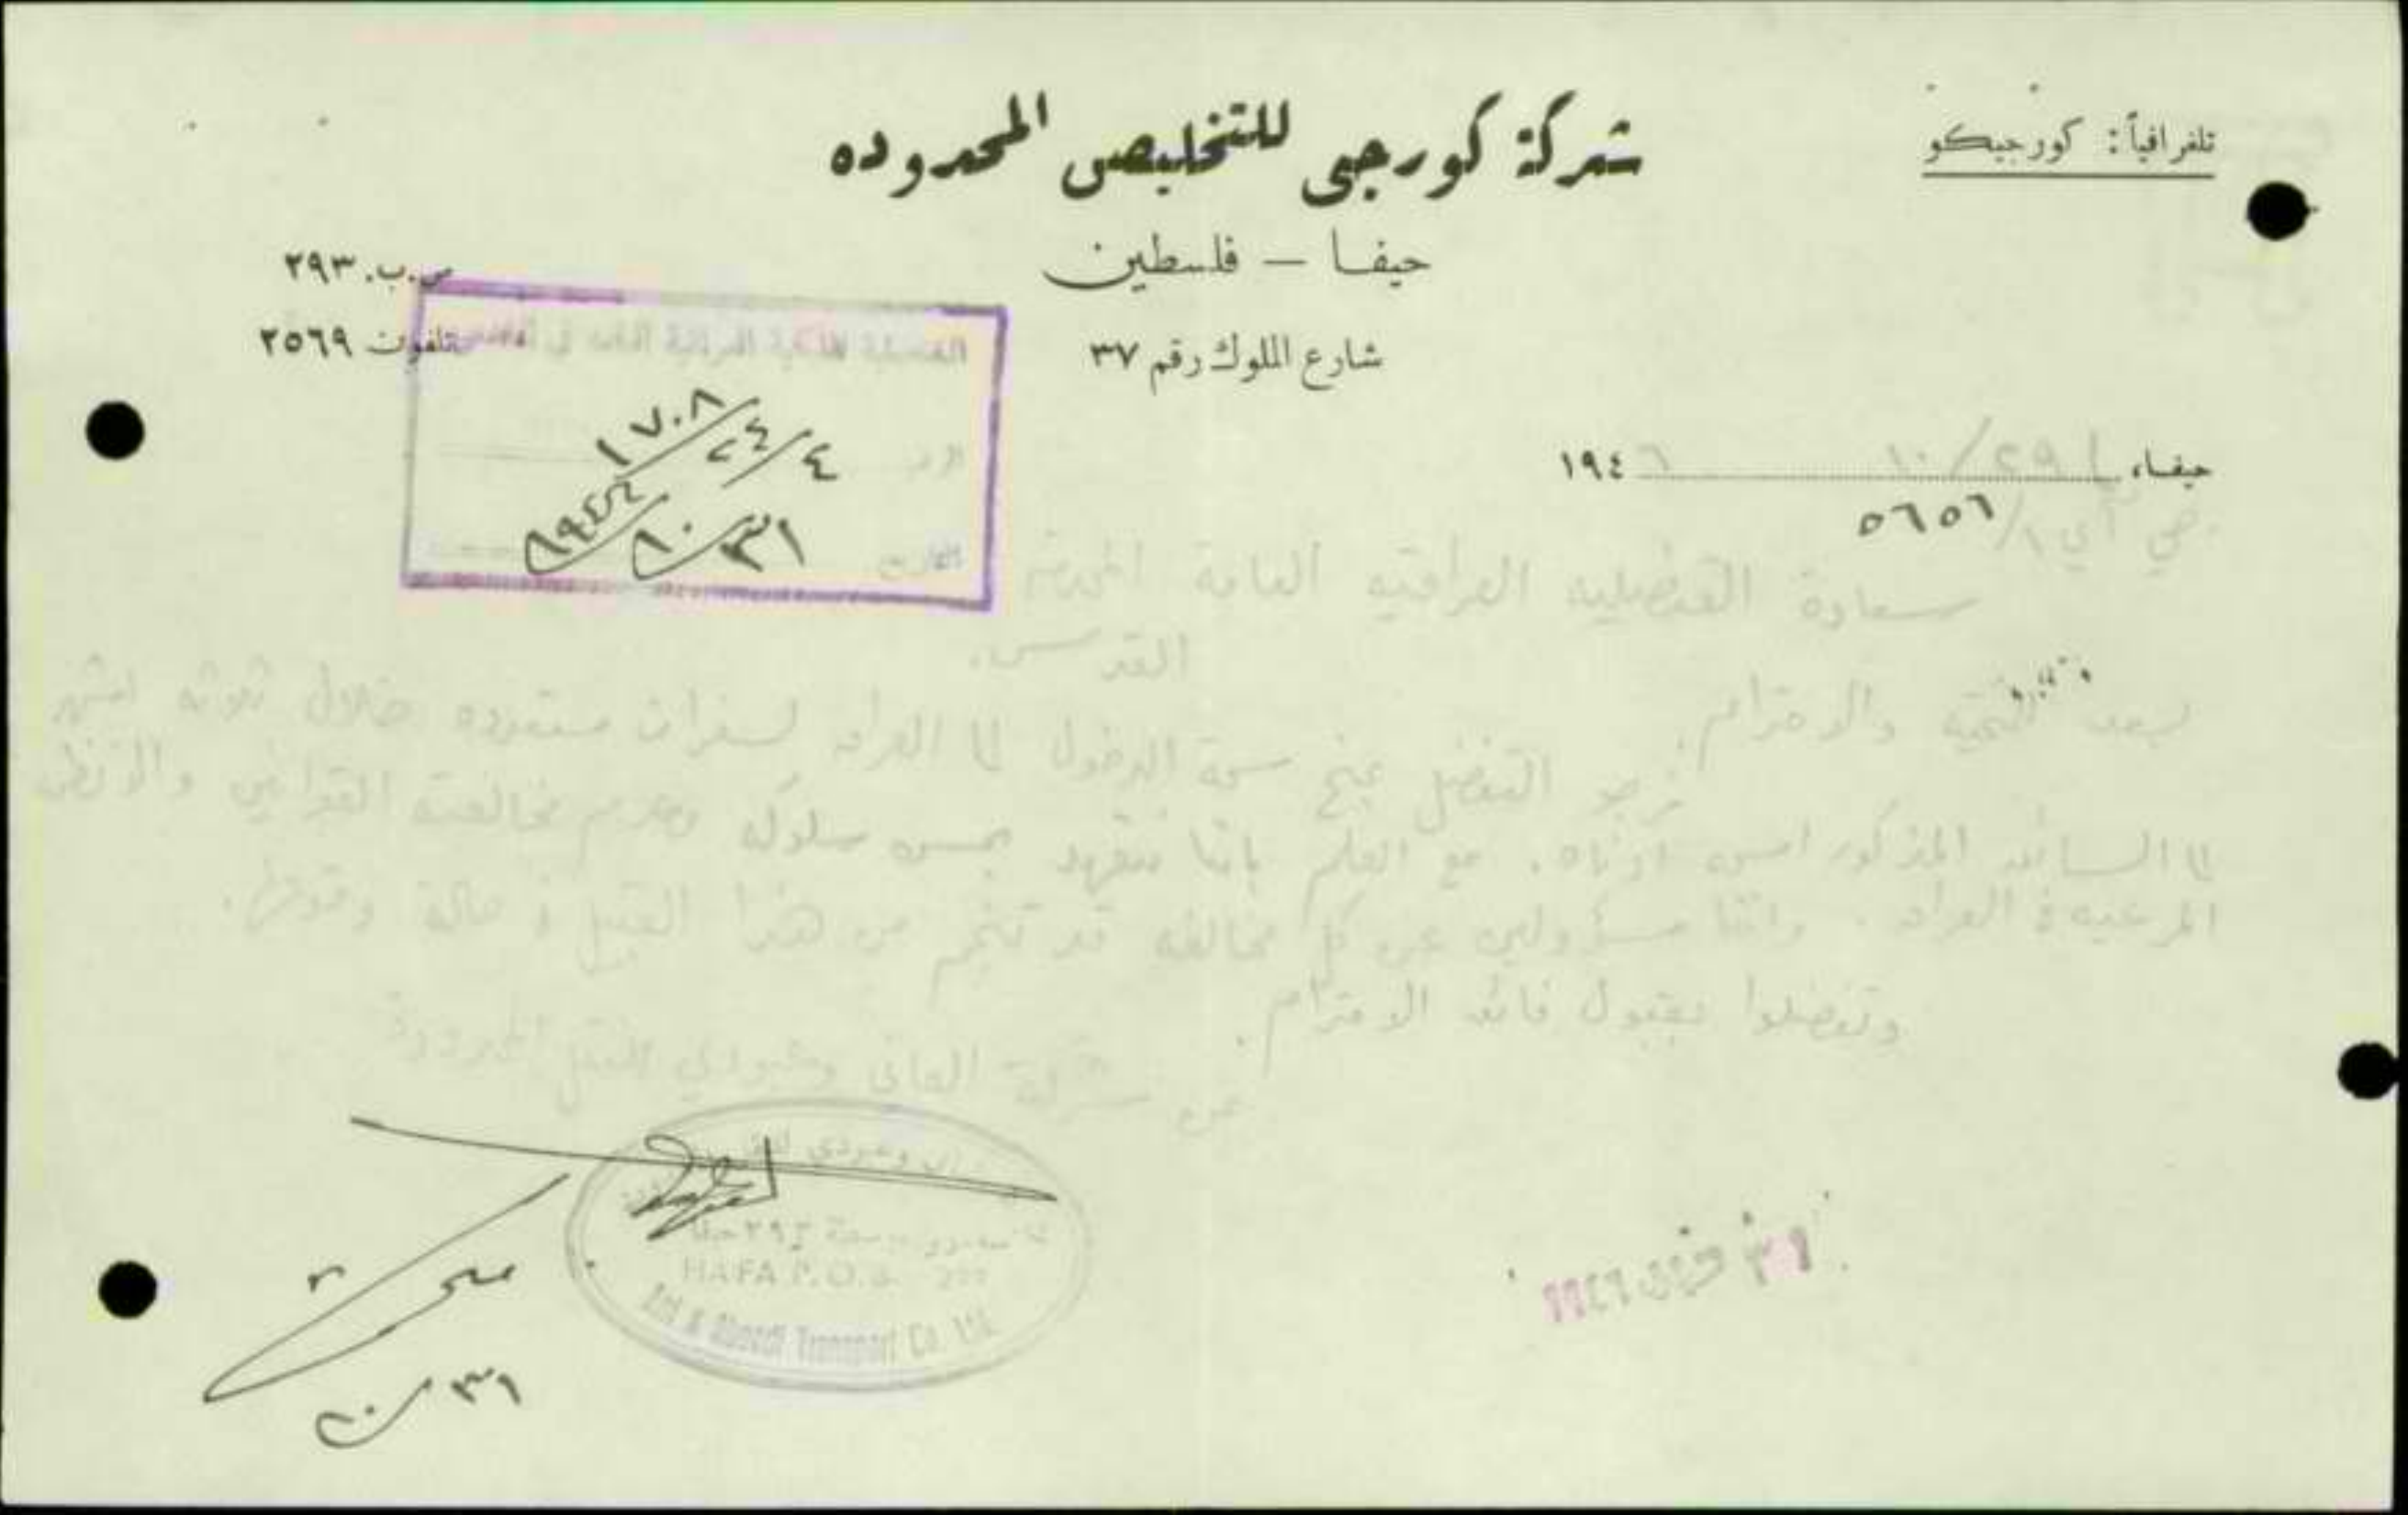 تلغرافياً: كورجيكو
شركة كورجي للتخليص المحدوده
حيفا – فلسطين
ص.ب. ٢٩٣
شارع الملوك رقم ٣٧
تلفون ٢٥٦٩
القنصلية الملكية العراقية العامة في القدس
الرقم
١٧٠٨
٤/٢٤
التاريخ
٣١/١٠/١٩٤٦
حيفا، ٢٩/١٠ ١٩٤٦
جي آي ١/٥٦٥٦
سعادة القنصليه العراقيه العامة المحترمة
القدس.
بعد التحيه والاحترام.
نرجو التفضل بمنح سمة الدخول الى العراق لسفرات متعدده خلال ثلاثه اشهر
الى السائق المذكور اسمه ادناه. مع العلم باننا نتعهد بحسن سلوكه وعدم مخالفته القوانين والانظمه
المرعيه في العراق. واننا مسؤولين عن كل مخالفه قد تنجم من هذا القبيل في حالة وقوعها.
وتفضلوا بقبول فائق الاحترام.
عن شركة العاني وعبودي للنقل المحدودة
وعبودي
٢٩٣ حيفا
HAIFA P.O.B. 293
Ani & Abbodi Transport Co. Ltd.
٣١/١٠